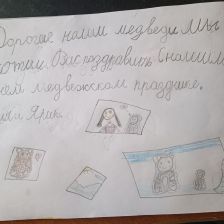 Дорогие наши медведи Мы
хотим Вас поздравить с нашим
медвежском празднике.
и Ярик.